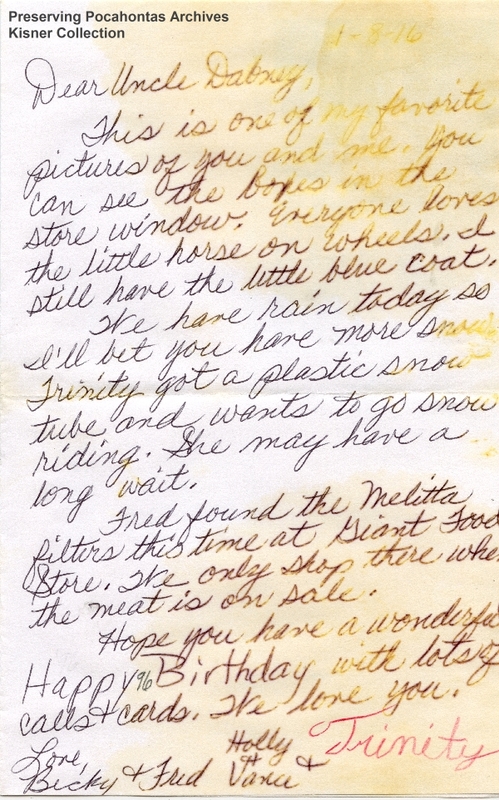 Preserving Pocahontas Archives
Kisner Collection
1-8-16
Dear Uncle Dabney,
This is one of my favorite
pictures of you and me. You
can see the boxes in the
store window. Everyone loves
the little horse on wheels. I
still have the little blue coat.
We have rain today so
I'll bet you have more snow
Trinity got a plastic snow
tube and wants to go snow
riding. She may have a
long wait.
Fred found the Melitta
filters this time at Giant Food
Store. We only shop there whe
the meat is on sale.
Hope you have a wonderful
Happy 96 Birthday with lots of
calls + cards. We love you.
Love,
Becky + Fred
Holly + Vance +
Trinity